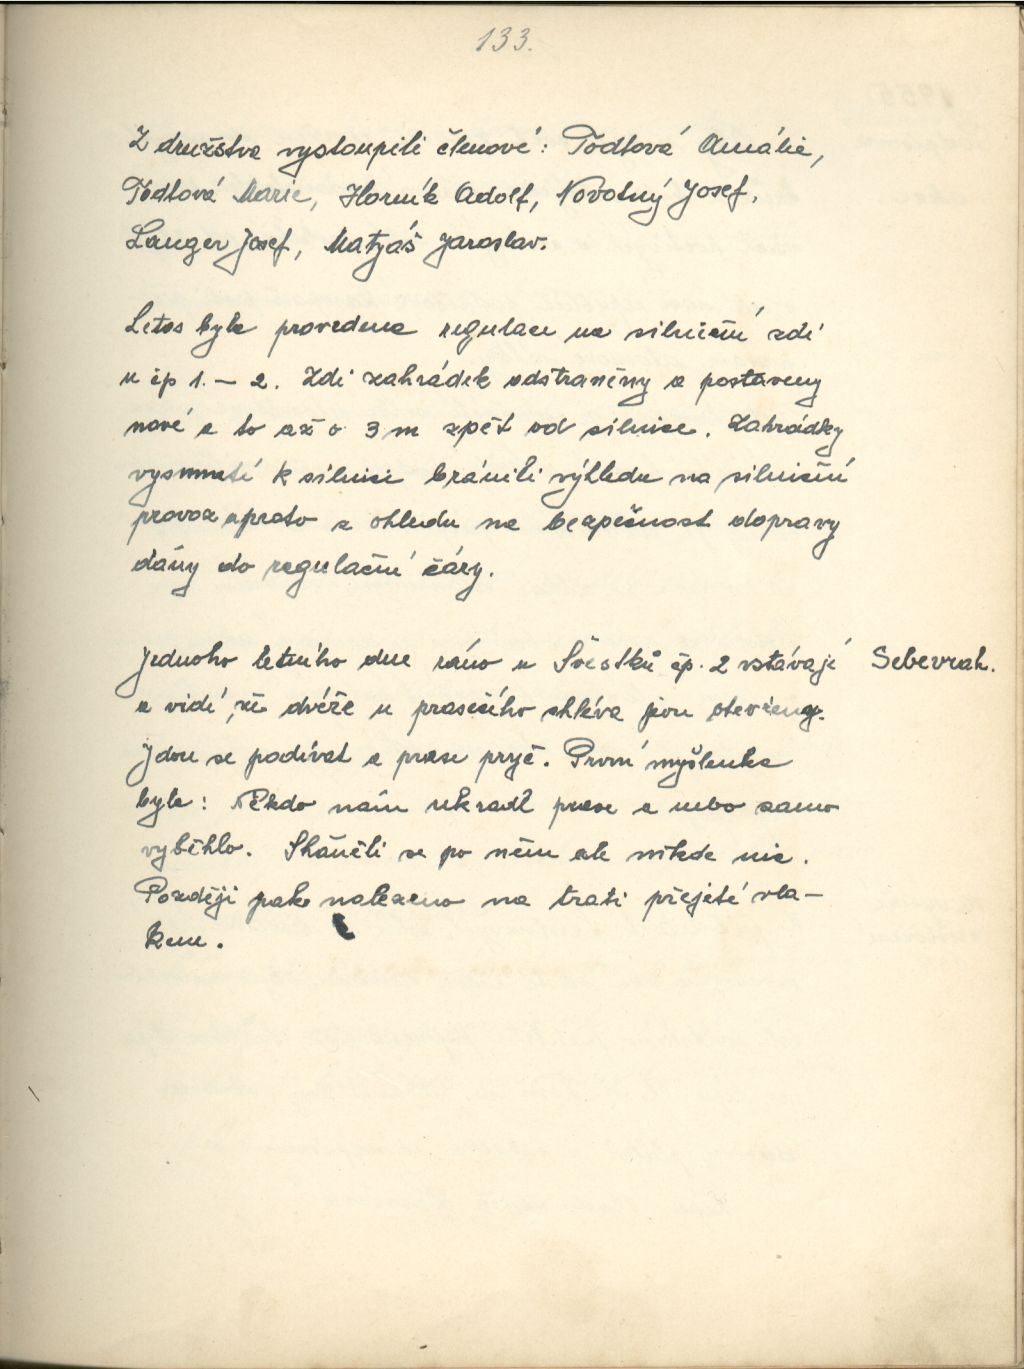 133.
Z družstva vystoupili členové: Tödtová Amálie,
Tödtová Marie, Horník Adolf, Novotný Josef,
Langer Josef, Matyáš Jaroslav.
Letos byla provedena regulace na silniční zdi
u čp 1. – 2. Zdi zahrádek odstraněny a postaveny
nové a to až o 3 m zpět od silnice. Zahrádky
vysunuté k silnici bránili výhledu na silniční
provoz a proto z ohledu na bezpečnost dopravy
dány do regulační čáry.
Jednoho letního dne ráno u Švestků čp. 2 vstávají
Sebevrah.
a vidí, že dvéře u prasečího chléva jsou otevřeny.
Jdou se podívat a prase pryč. První myšlenka
byla: Někdo nám ukradl prase a nebo samo
vyběhlo. Sháněli se po něm ale nikde nic.
Později pak nalezeno na trati přejeté vla–
kem.